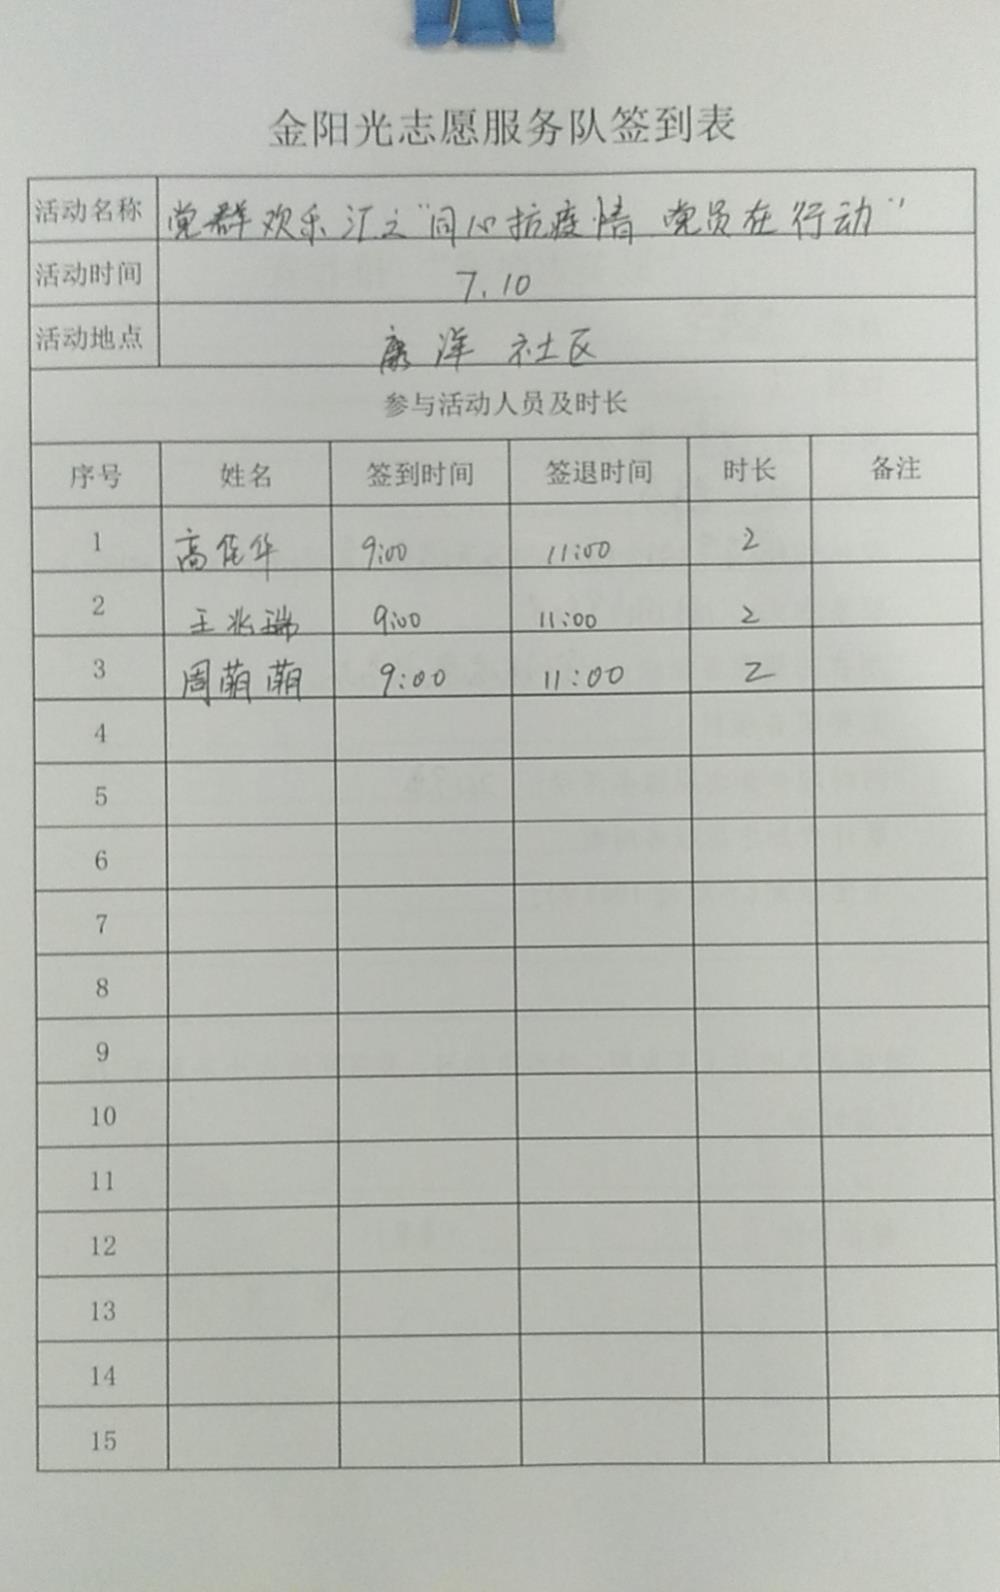 金阳光志愿服务队签到表
活动名称 党群欢乐汇之"同心抗疫情 党员在行动"
活动时间 7.10
活动地点 康洋 社区
参与活动人员及时长
序号 姓名 签到时间 签退时间 时长 备注
1 高佳华 9:00 11:00 2
2 王兆瑞 9:00 11:00 2
3 周萌萌 9:00 11:00 2
4
5
6
7
8
9
10
11
12
13
14
15